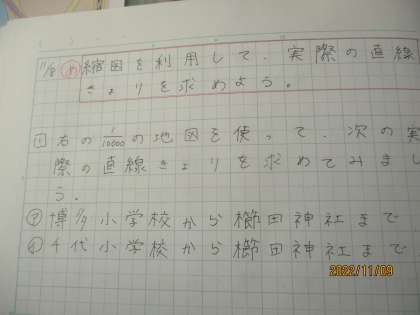 11/9 め 縮図を利用して、実際の直線
きょりを求めよう。
① 右の1/10000の地図を使って、次の実
際の直線きょりを求めてみましょ
う。
㋐ 博多小学校から櫛田神社まで
㋑ 千代小学校から櫛田神社まで
2022/11/09